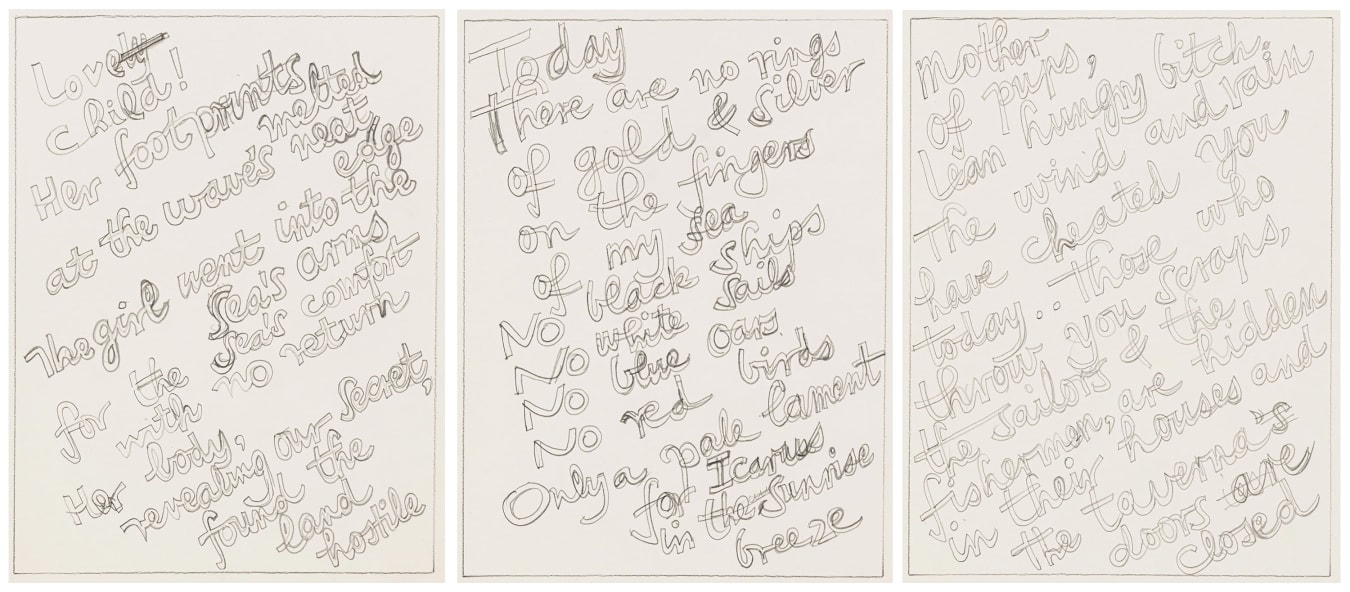 Lovely
child!
Her footprints melted
at the wave's neat edge
The girl went into the
Sea's arms
for the sea's comfort
with no return
Her body,
revealing our secret,
found the
land
hostile
Today
There are no rings
of gold & silver
on the fingers
of my sea
No black ships
No white sails
No blue oars.
No red birds
Only a pale lament
for Icarus
in the sunrise
breeze
mother
of pups,
Lean hungry bitch.
The wind and vain
have cheated you
today.. Those who
throw you scraps,
the sailors & the
fishermen, are hidden
in their houses and
the taverna's
doors are
closed